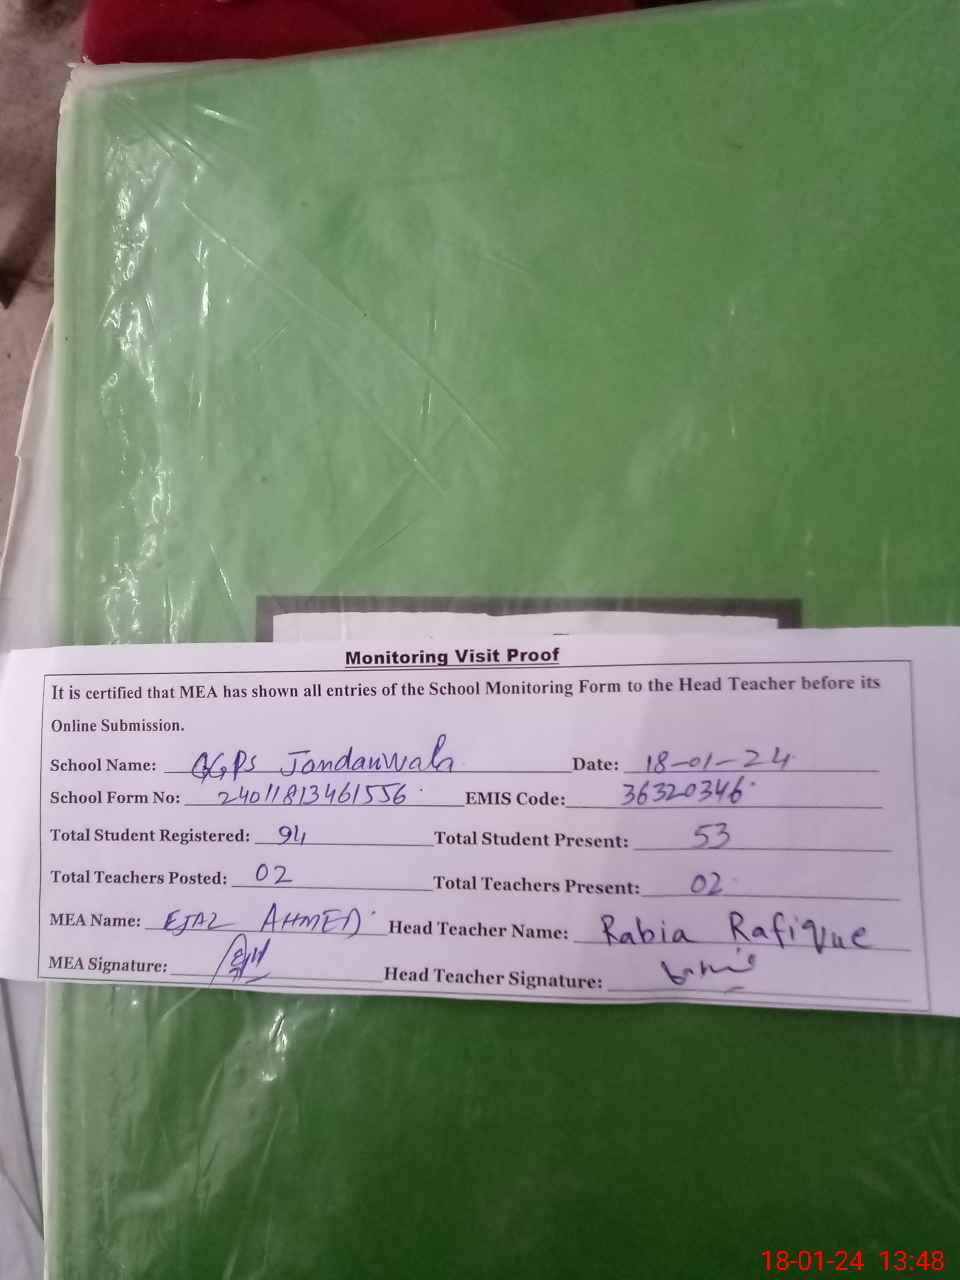 Monitoring Visit Proof
It is certified that MEA has shown all entries of the School Monitoring Form to the Head Teacher before its
Online Submission.
School Name: GGPS Jondanwala Date: 18-01-24
School Form No: 24011813461556 EMIS Code: 36320346
Total Student Registered: 94 Total Student Present: 53
Total Teachers Posted: 02 Total Teachers Present: 02
MEA Name: EJAZ AHMED Head Teacher Name: Rabia Rafique
MEA Signature: Head Teacher Signature:
18-01-24 13:48